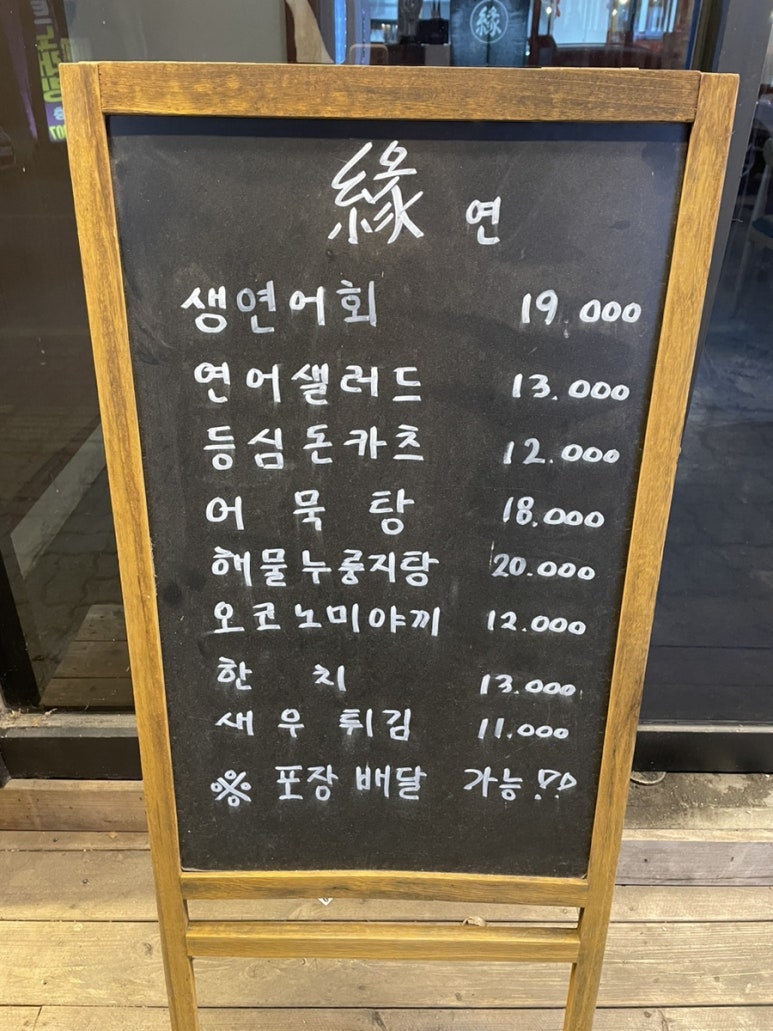 緣
緣 연
생연어회 19.000
연어샐러드 13.000
등심돈카츠 12.000
어묵탕 18.000
해물누룽지탕 20.000
오코노미야끼 12.000
한치 13.000
새우튀김 11.000
※ 포장 배달 가능!!